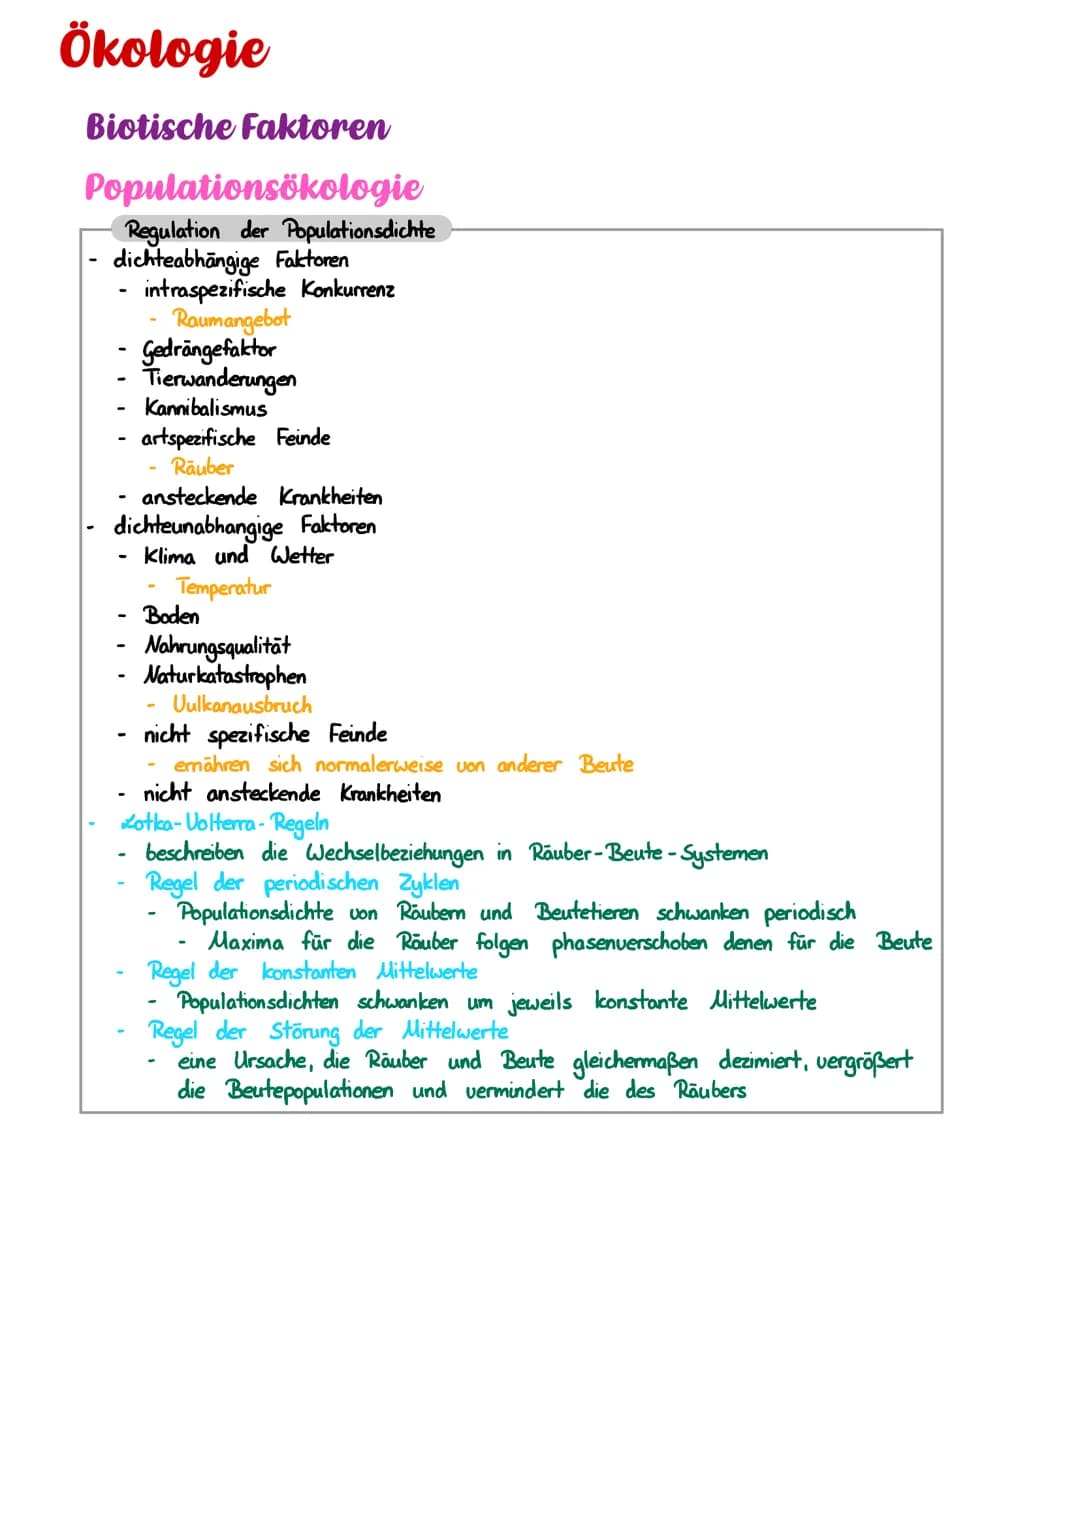 Ökologie
Biotische Faktoren
Populationsökologie
Regulation der Populationsdichte
- dichteabhängige Faktoren
- intraspezifische Konkurrenz
- Raumangebot
- Gedrängefaktor
- Tierwanderungen
- Kannibalismus
- artspezifische Feinde
- Räuber
- ansteckende Krankheiten
- dichteunabhangige Faktoren
- Klima und Wetter
- Temperatur
- Boden
- Nahrungsqualität
- Naturkatastrophen
- Vulkanausbruch
- nicht spezifische Feinde
- ernähren sich normalerweise von anderer Beute
- nicht ansteckende Krankheiten
- Lotka-Volterra-Regeln
- beschreiben die Wechselbeziehungen in Räuber-Beute-Systemen
- Regel der periodischen Zyklen
- Populationsdichte von Räubern und Beutetieren schwanken periodisch
- Maxima für die Räuber folgen phasenverschoben denen für die Beute
- Regel der konstanten Mittelwerte
- Populationsdichten schwanken um jeweils konstante Mittelwerte
- Regel der Störung der Mittelwerte
- eine Ursache, die Räuber und Beute gleichermaßen dezimiert, vergrößert
die Beutepopulationen und vermindert die des Räubers